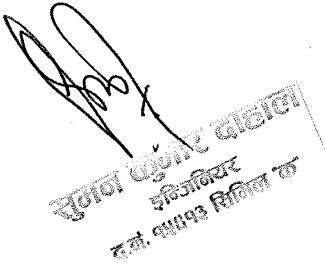 सुमन कुमार दाहाल
इन्जिनियर
द.नं. १५५१३ सिभिल "क"